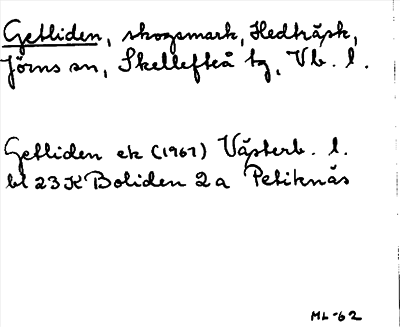 Getliden, skogsmark, Hedträsk,
Jörns sn, Skellefteå tg, Vb. l.
Getliden ek (1967) Västerb. l.
bl 23 K Boliden 2 a Petiknäs
ML-62